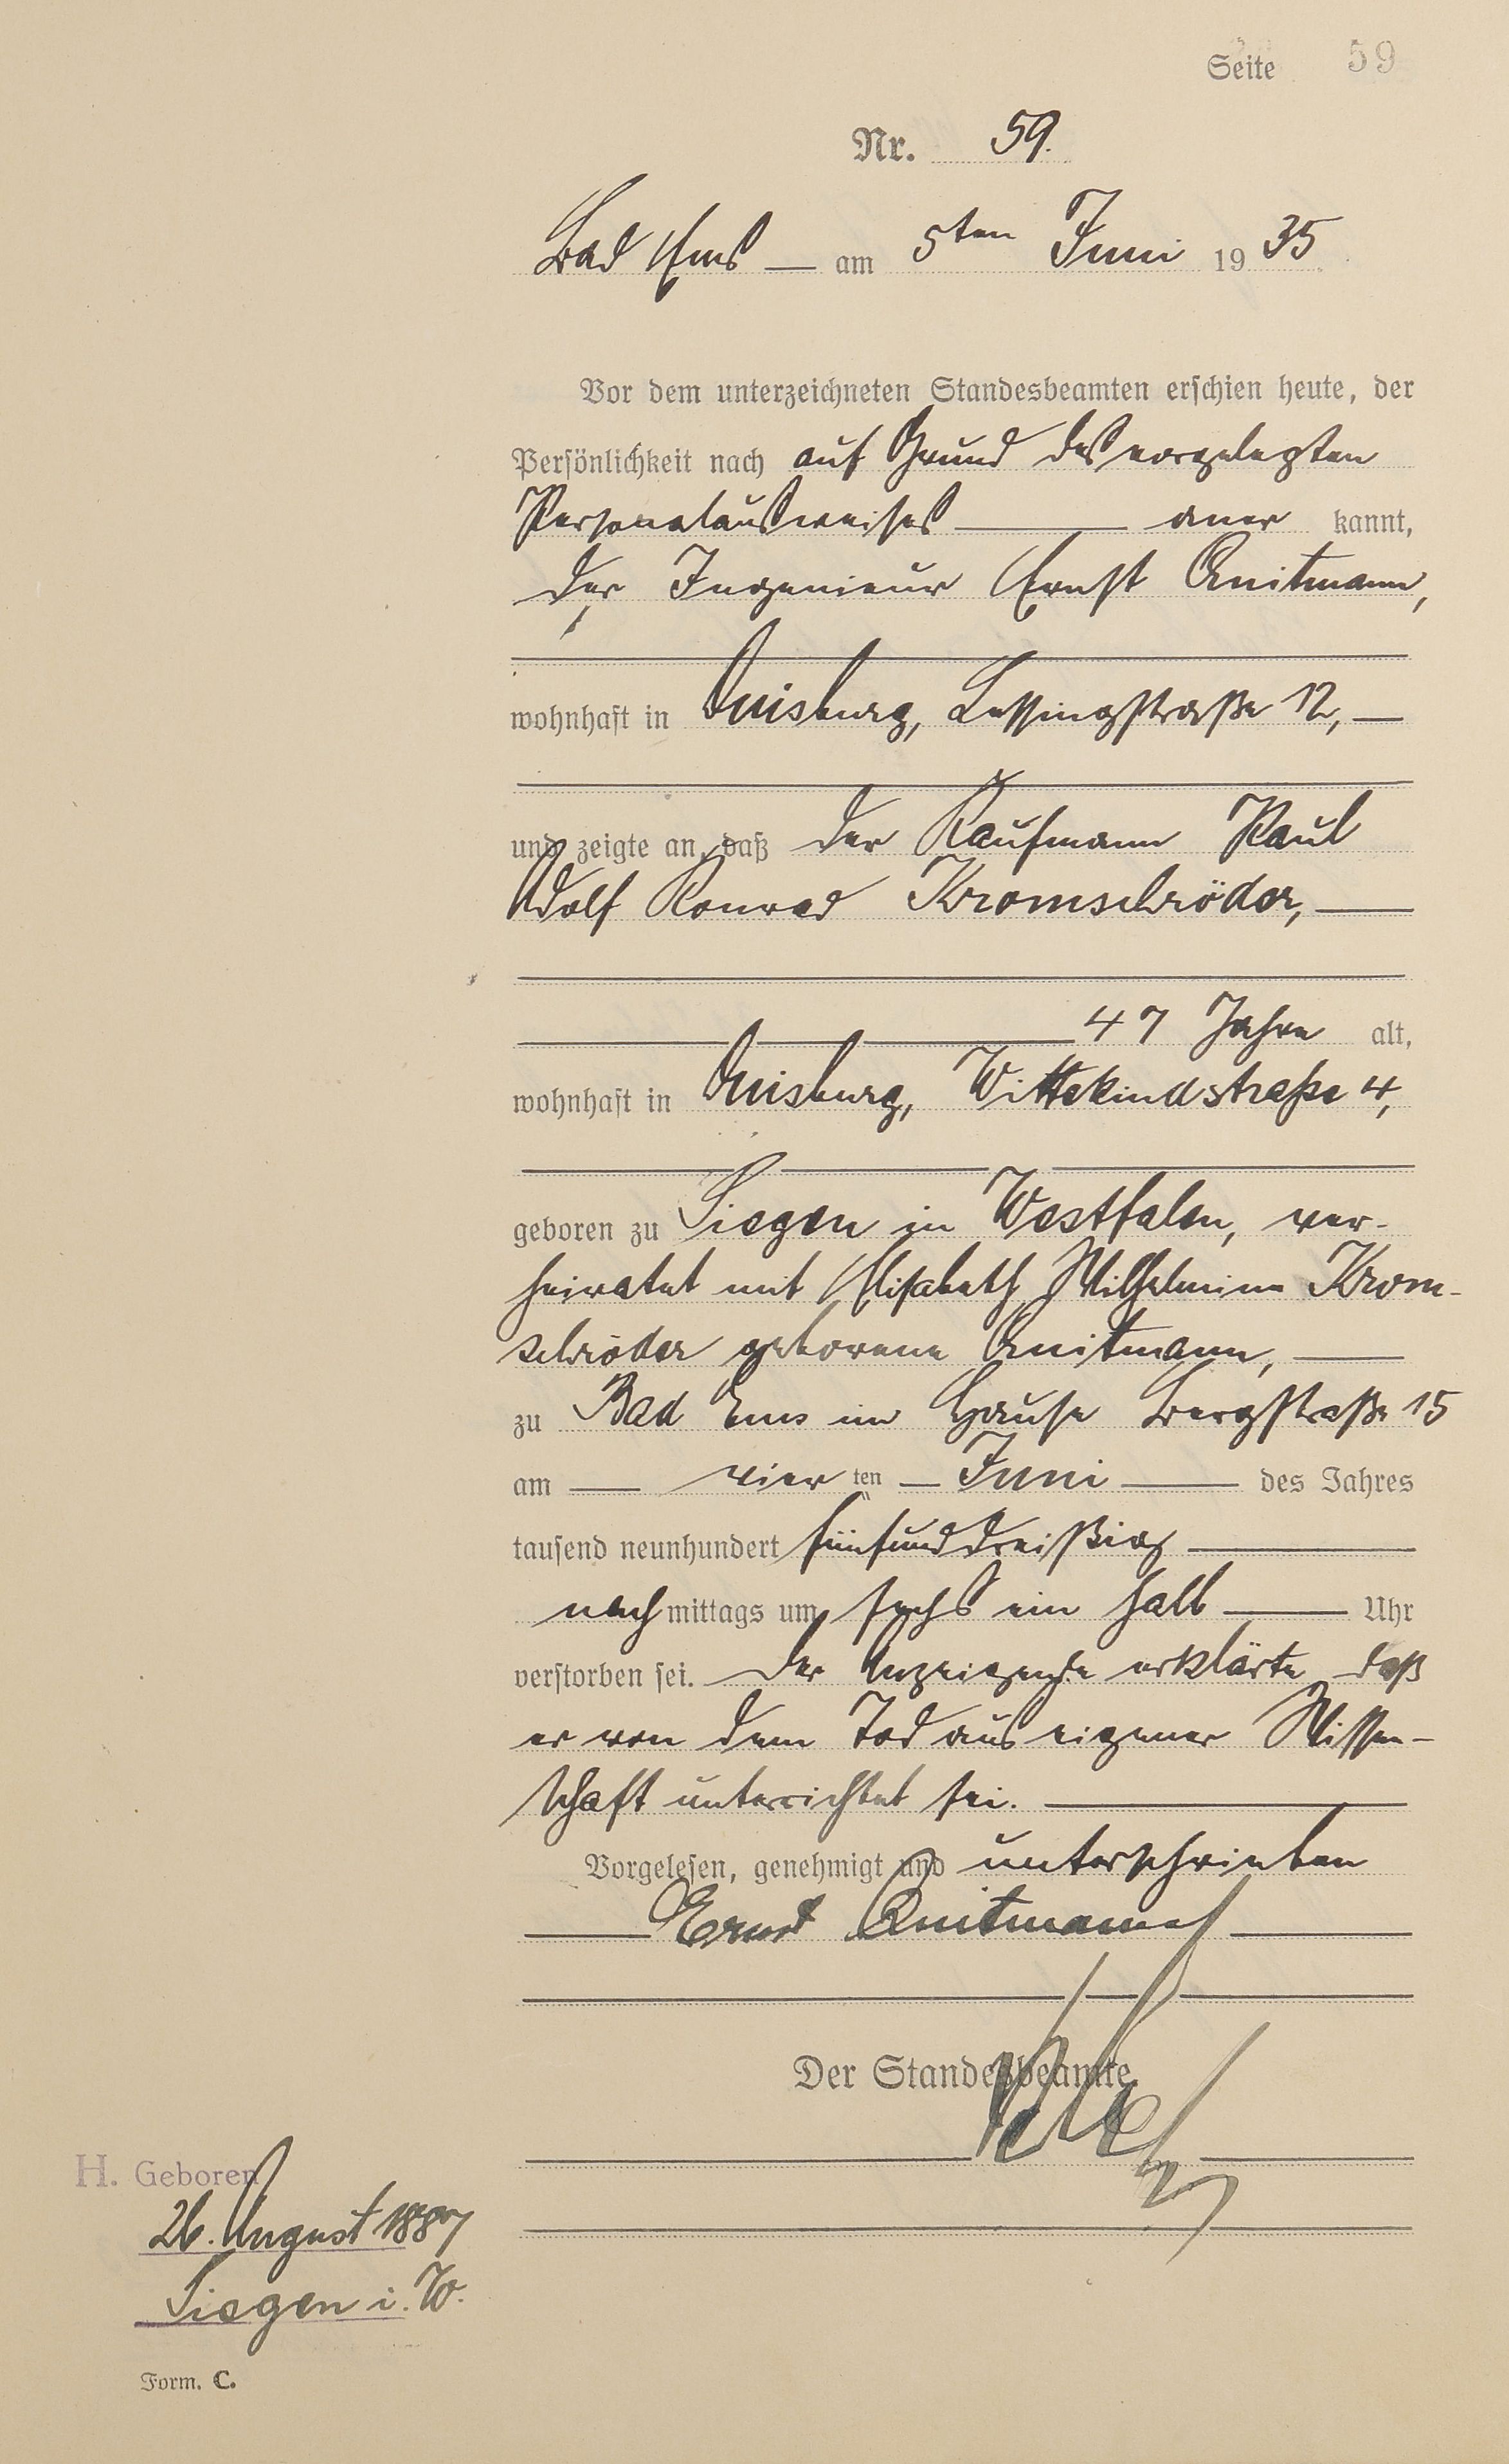 Seite 59
Nr. 59.
Bad Ems — am 5ten Juni 1935
Vor dem unterzeichneten Standesbeamten erschien heute, der
Persönlichkeit nach auf Grund des vorgelegten
Personalausweises — aner kannt,
der Ingenieur Ernst Quitmann,
wohnhaft in Duisburg, Lessingstraße 12, —
und zeigte an, daß der Kaufmann Paul
Adolf Konrad Kromschröder, —
47 Jahre alt,
wohnhaft in Duisburg, Wittekindstraße 4,
geboren zu Siegen in Westfalen, ver-
heiratet mit Elisabeth Wilhelmine Krom-
schröder geborene Quitmann, —
zu Bad Ems im Hause Bergstraße 15
am — vier ten — Juni — des Jahres
tausend neunhundert fünfunddreißig —
nach mittags um sechs ein halb — Uhr
verstorben sei. Der Anzeigende erklärte, daß
er von dem Tod aus eigener Wissen-
schaft unterrichtet sei. —
Vorgelesen, genehmigt und unterschrieben
— Ernst Quitmann —
Der Standesbeamte.
H. Geboren
26. August 1887
Siegen i. W.
Form. C.